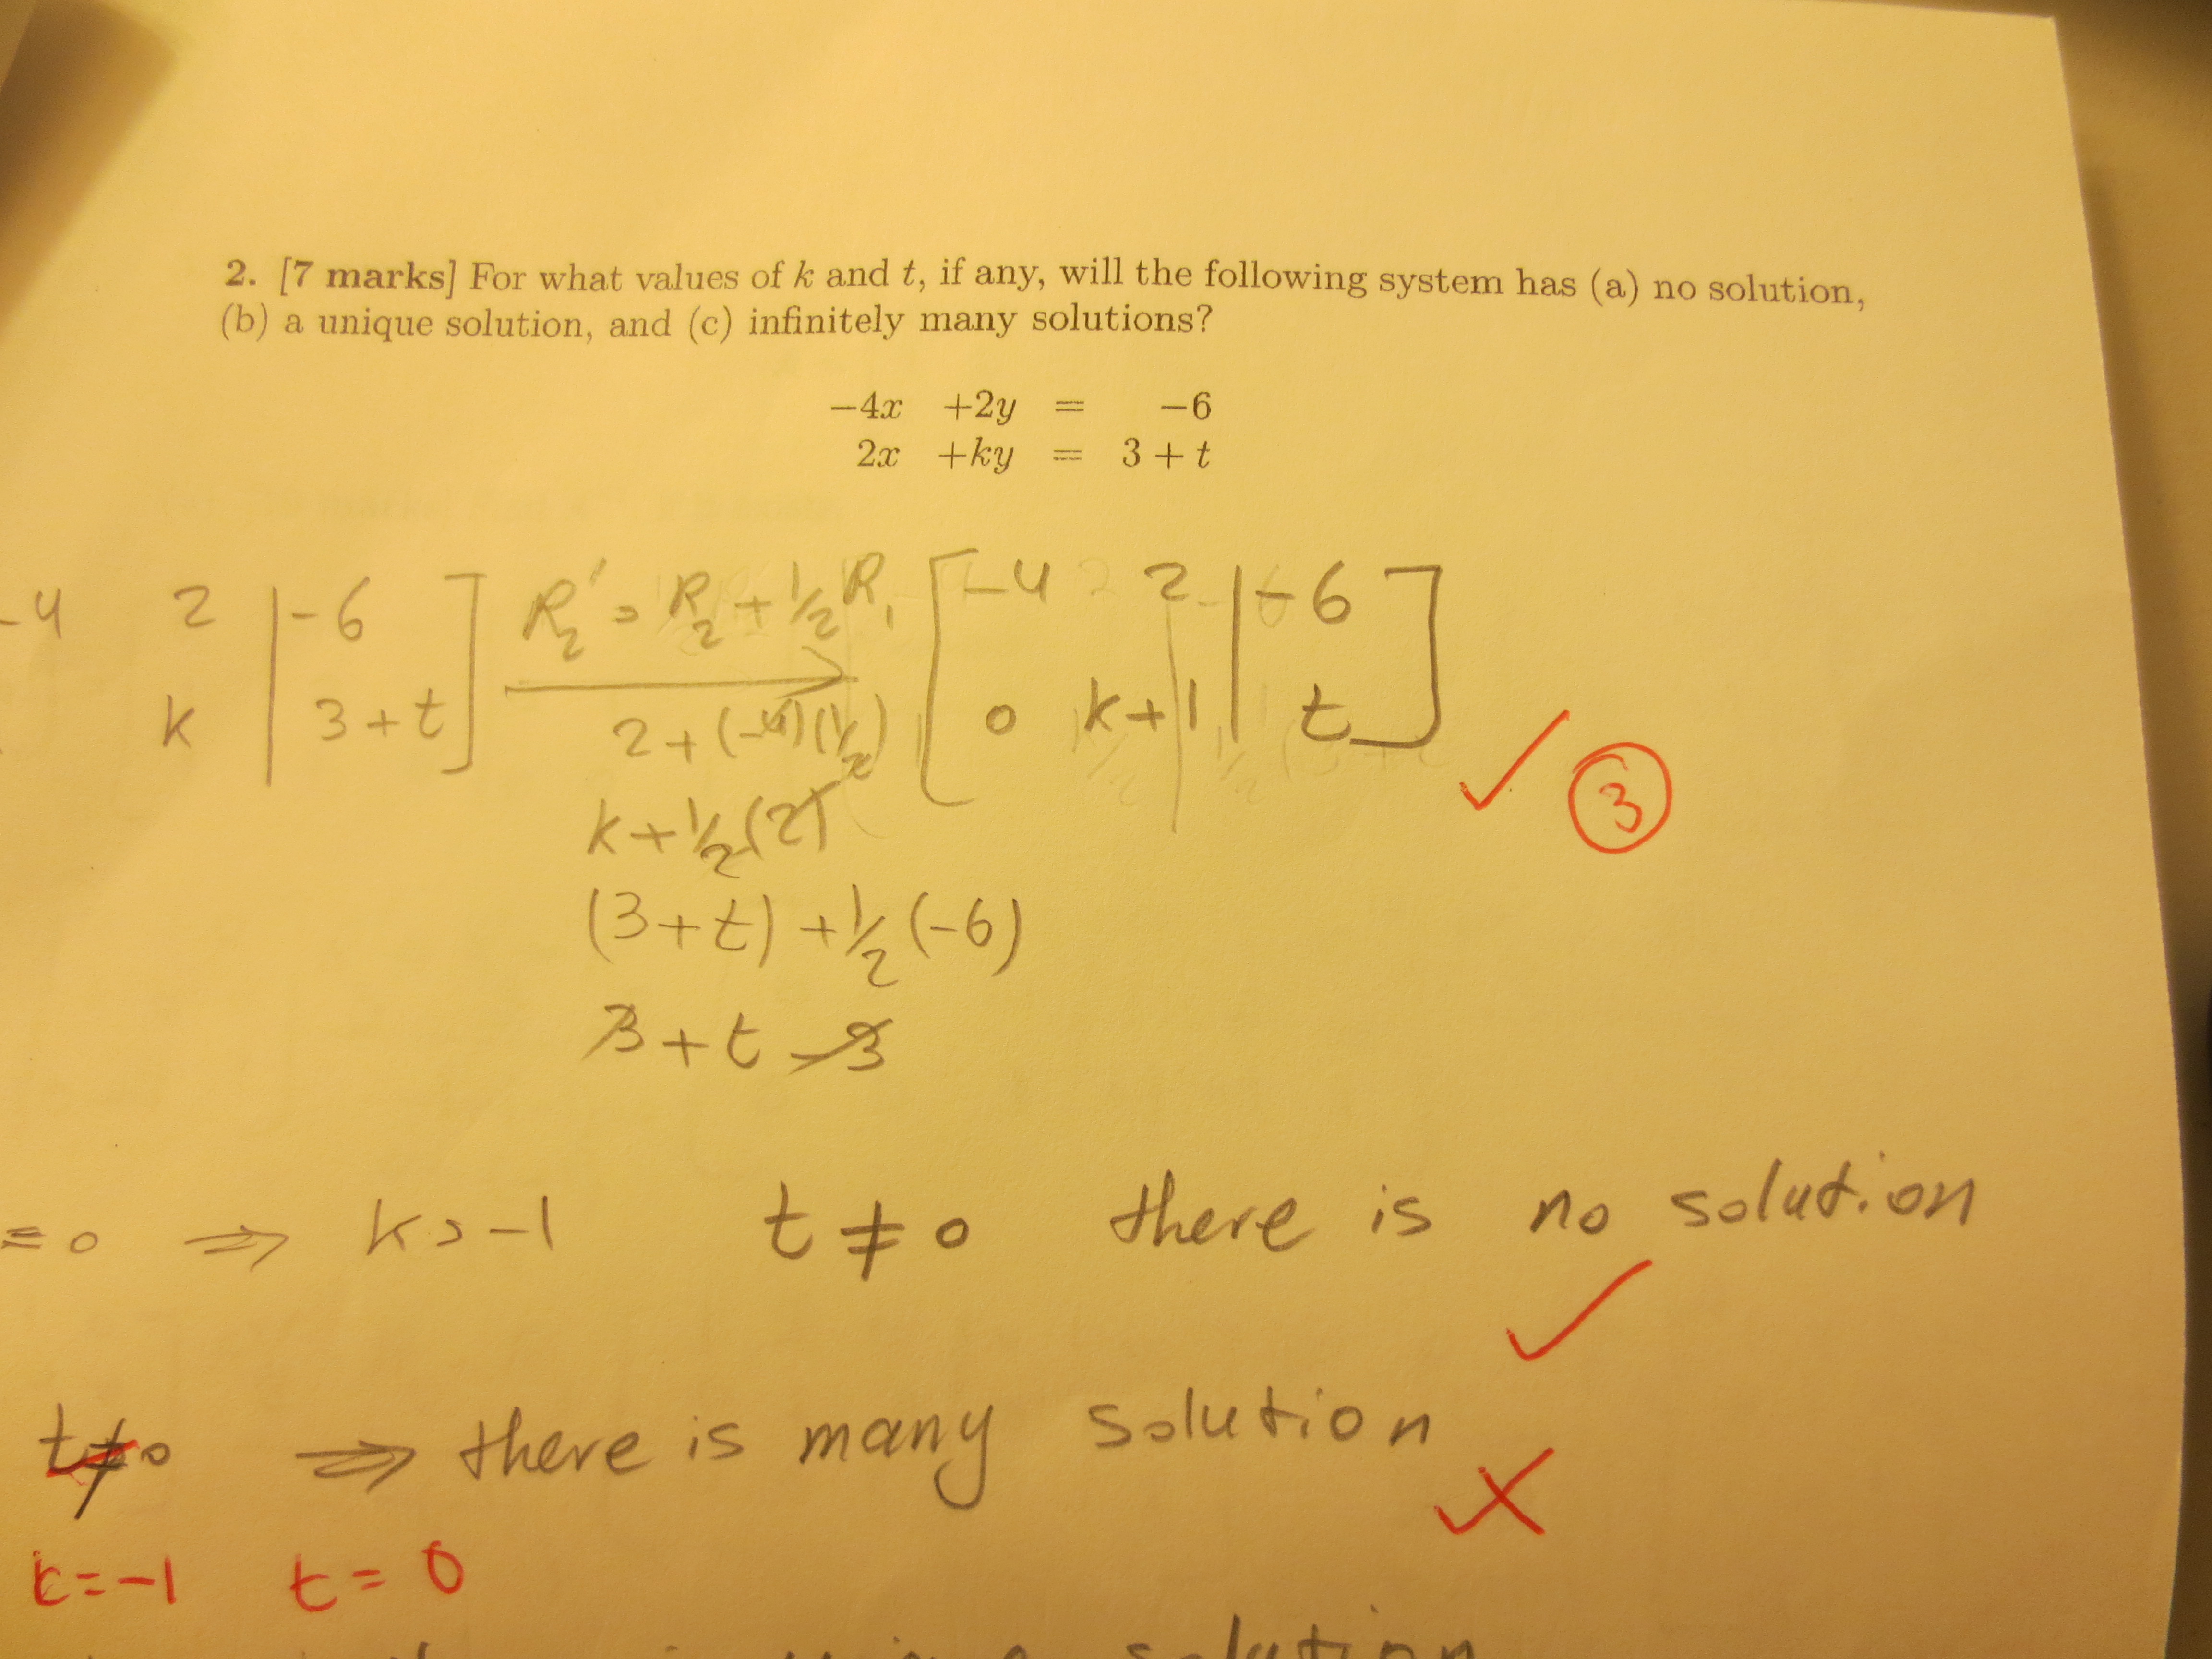 2. [7 marks] For what values of k and t, if any, will the following system has (a) no solution,
(b) a unique solution, and (c) infinitely many solutions?
−4x +2y = −6
2x +ky = 3 + t
-4 2 | -6 ] R₂' = R₂ + 1/2 R₁ [ -4 2 | -6 ]
k | 3+t ] 2+(-4)(1/2) [ 0 k+1 | t ]
✓ 3
k+1/2(2)
(3+t) +1/2(-6)
3+t -3
= 0 ⇒ k = -1 t ≠ 0 there is no solution
✓
t ≠ 0 ⇒ there is many solution
✗
k = -1 t = 0
solution